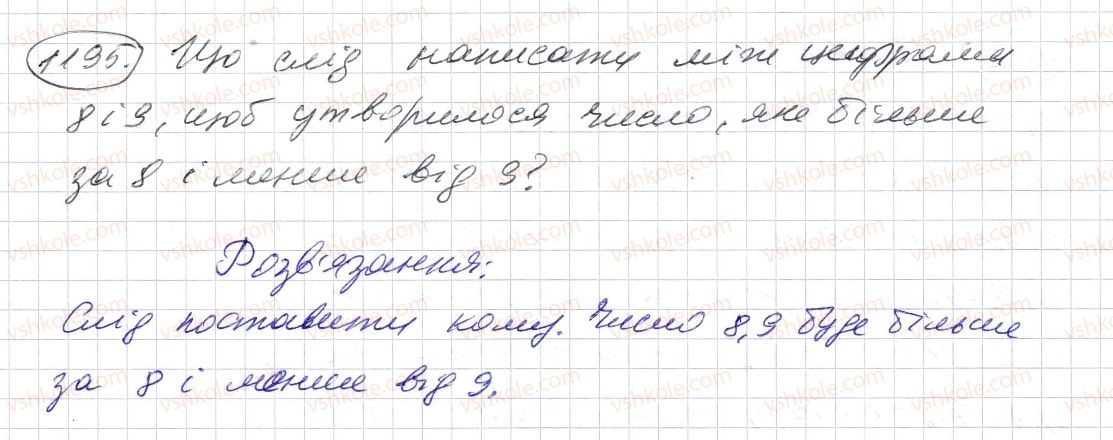 1195. Що слід написати між цифрами
8 і 9, щоб утворилося число, яке більше
за 8 і менше від 9?
Розв'язання:
Слід поставити кому. Число 8,9 буде більше
за 8 і менше від 9.